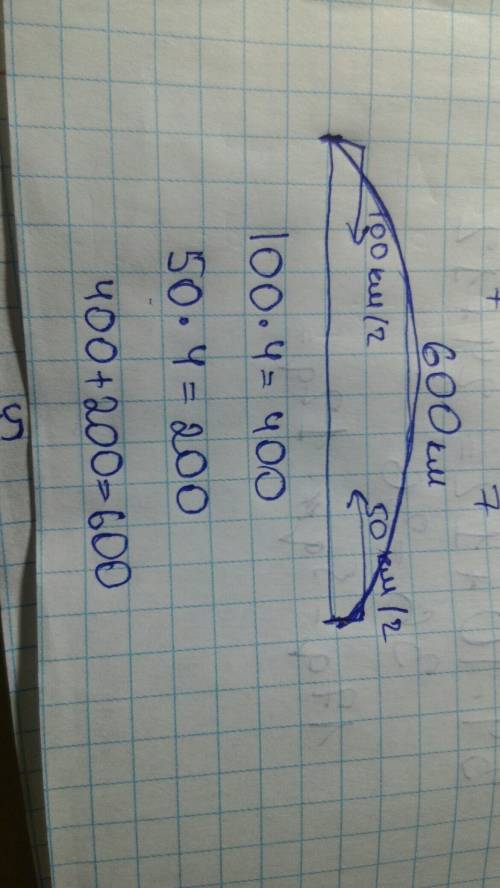 600 км
100 км/г 50 км/г
100 · 4 = 400
50 · 4 = 200
400 + 200 = 600